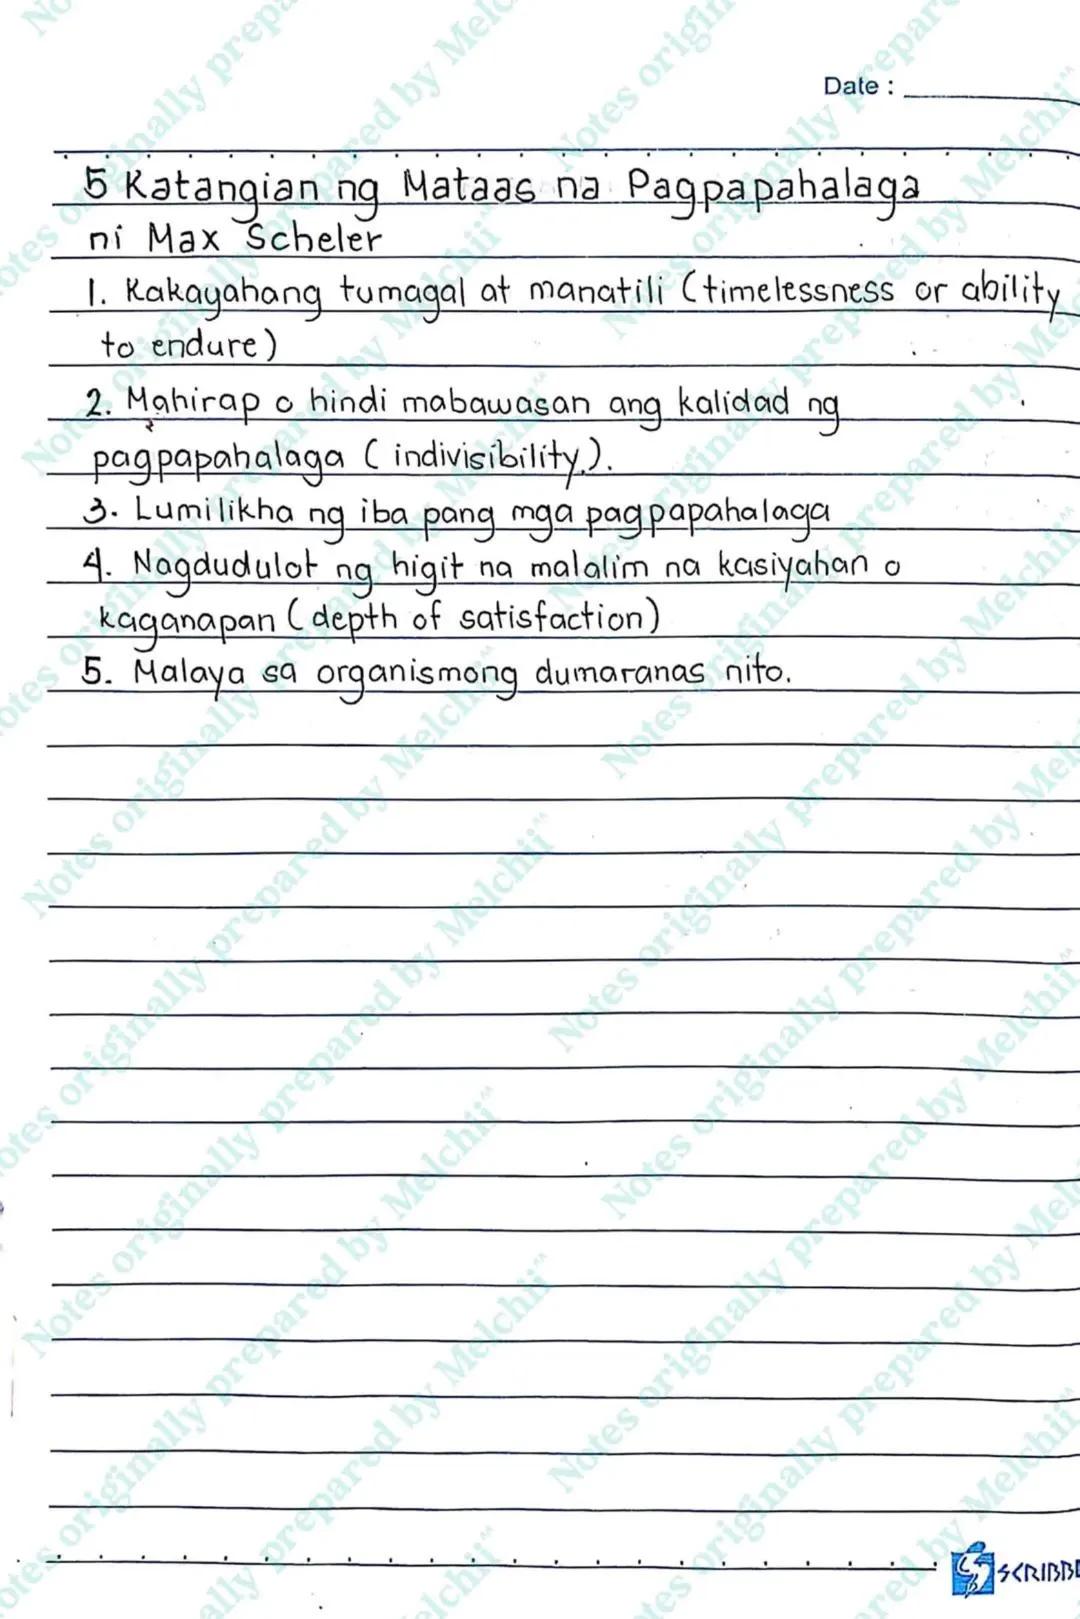 Date :
5 Katangian ng Mataas na Pagpapahalaga
ni Max Scheler
1. Kakayahang tumagal at manatili (timelessness or ability
to endure)
2. Mahirap o hindi mabawasan ang kalidad ng
pagpapahalaga ( indivisibility,).
3. Lumilikha ng iba pang mga pagpapahalaga
4. Nagdudulot ng higit na malalim na kasiyahan o
kaganapan ( depth of satisfaction)
5. Malaya sa organismong dumaranas nito.
Notes originally prepared by Melchii^^